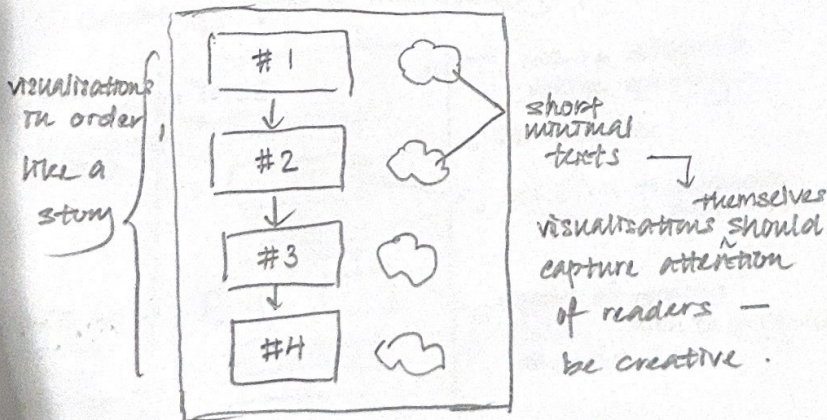 visualisations
in order,
like a
story
#1
#2
#3
#4
short
minimal
texts
themselves
visualisations should
capture attention
of readers —
be creative.